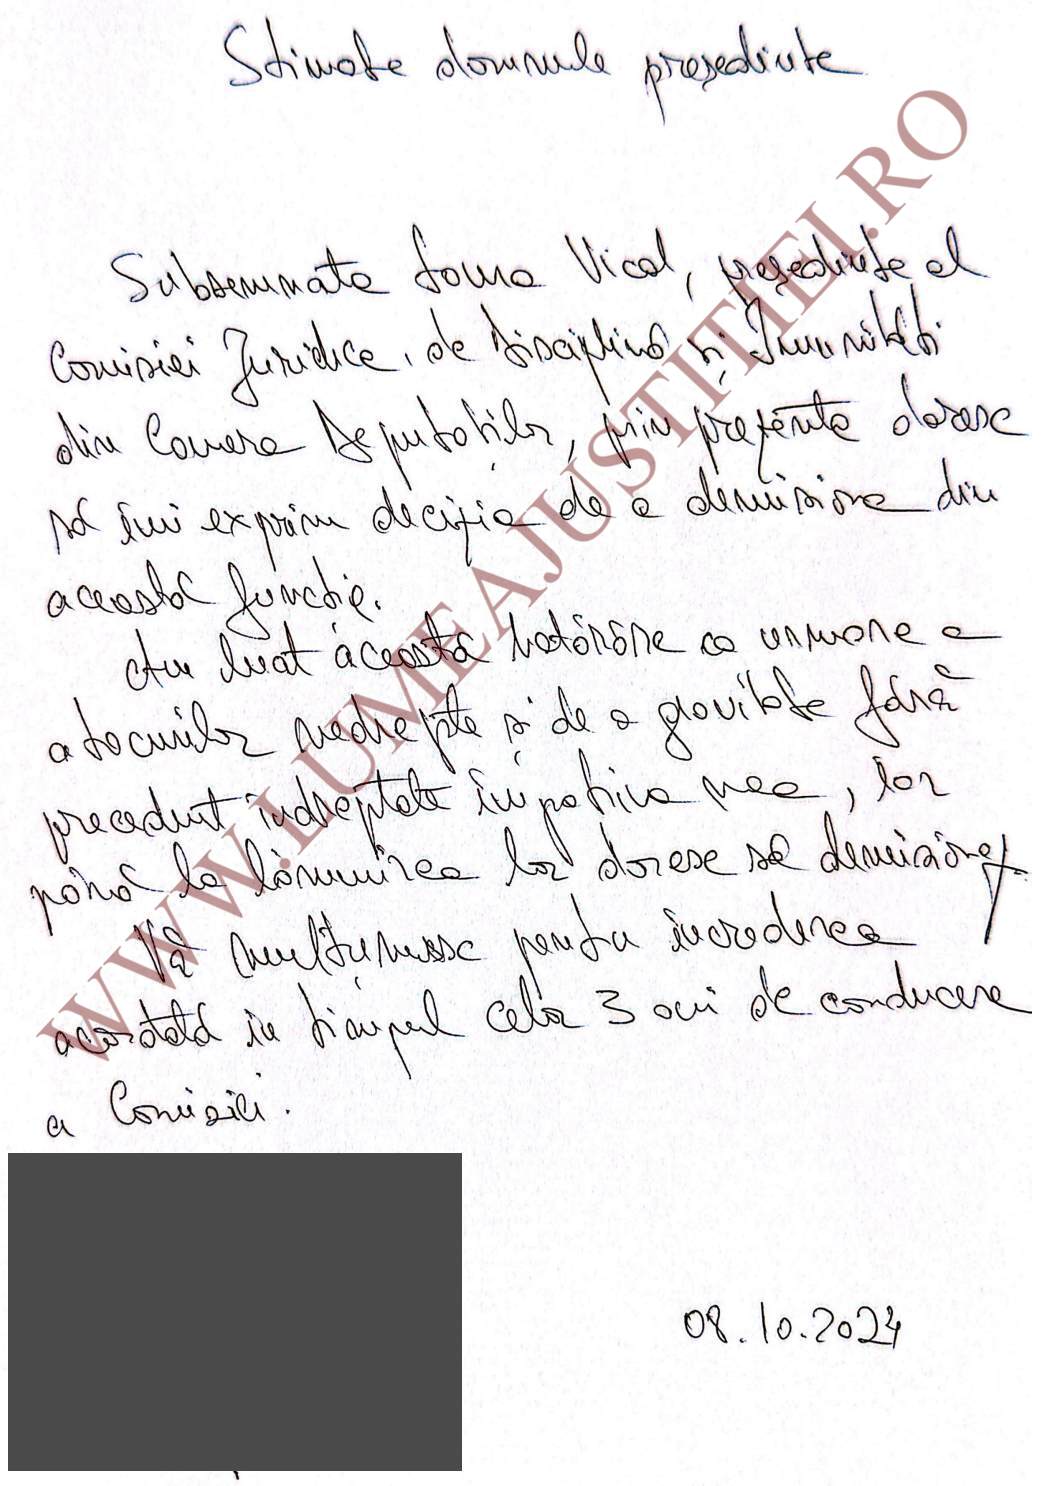 Stimate domnule președinte
Subsemnata Laura Vicol, președinte al
Comisiei Juridice, de Disciplină și Imunități
din Camera Deputaților, prin prezenta doresc
să îmi exprim decizia de a demisiona din
această funcție.
Am luat această hotărâre ca urmare a
atacurilor nedrepte și de o gravitate fără
precedent îndreptate împotriva mea, iar
până la lămurirea lor doresc să demisionez.
Vă mulțumesc pentru încrederea
acordată în timpul celor 3 ani de conducere
a Comisiei.
08.10.2024
WWW.LUMEAJUSTITIEI.RO